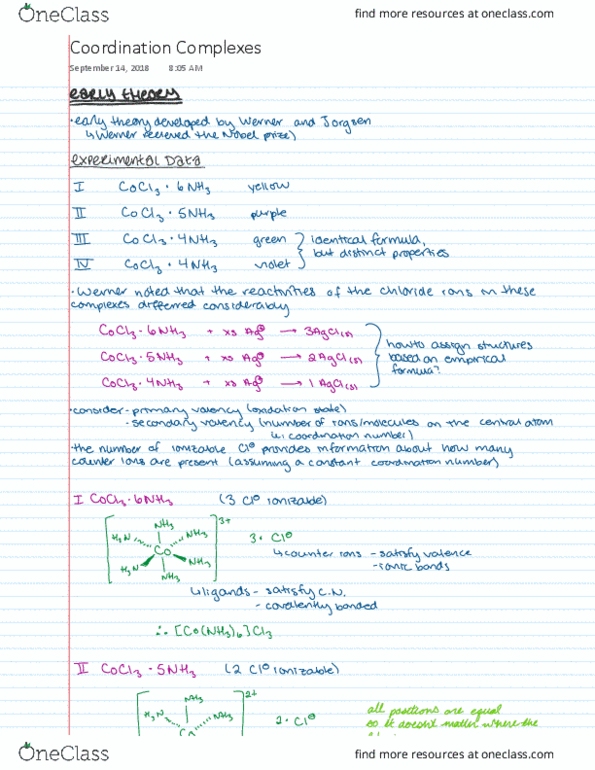 OneClass
find more resources at oneclass.com
Coordination Complexes
September 14, 2018 8:05 AM
EARLY THEORY
• early theory developed by Werner and Jorgsen
↳ Werner recieved the Nobel prize)
EXPERIMENTAL DATA
I CoCl₃ • 6NH₃ yellow
II CoCl₃ • 5NH₃ purple
III CoCl₃ • 4NH₃ green
IV CoCl₃ • 4NH₃ violet
identical formula,
but distinct properties
• Werner noted that the reactivities of the chloride ions in these
complexes differred considerably
CoCl₃ • 6NH₃ + xs Ag⊕ → 3AgCl(s)
CoCl₃ • 5NH₃ + xs Ag⊕ → 2AgCl(s)
CoCl₃ • 4NH₃ + xs Ag⊕ → 1 AgCl(s)
how to assign structures
based on empirical
formula?
• consider - primary valency (oxidation state)
- secondary valency (number of ions/molecules on the central atom
coordination number)
• the number of ionizable Cl⊖ provides information about how many
counter ions are present (assuming a constant coordination number)
I CoCl₃ • 6NH₃ (3 Cl⊖ ionizable)
NH₃ 3+
H₃N NH₃
Co
H₃N NH₃
NH₃
3 • Cl⊖
↳ counter ions - satisfy valence
- ionic bonds
↳ ligands - satisfy C.N.
- covalently bonded
∴ [Co(NH₃)₆]Cl₃
II CoCl₃ • 5NH₃ (2 Cl⊖ ionizable)
NH₃ 2+
H₃N NH₃
2 • Cl⊖
all positions are equal
so it doesn't matter where the
OneClass
find more resources at oneclass.com